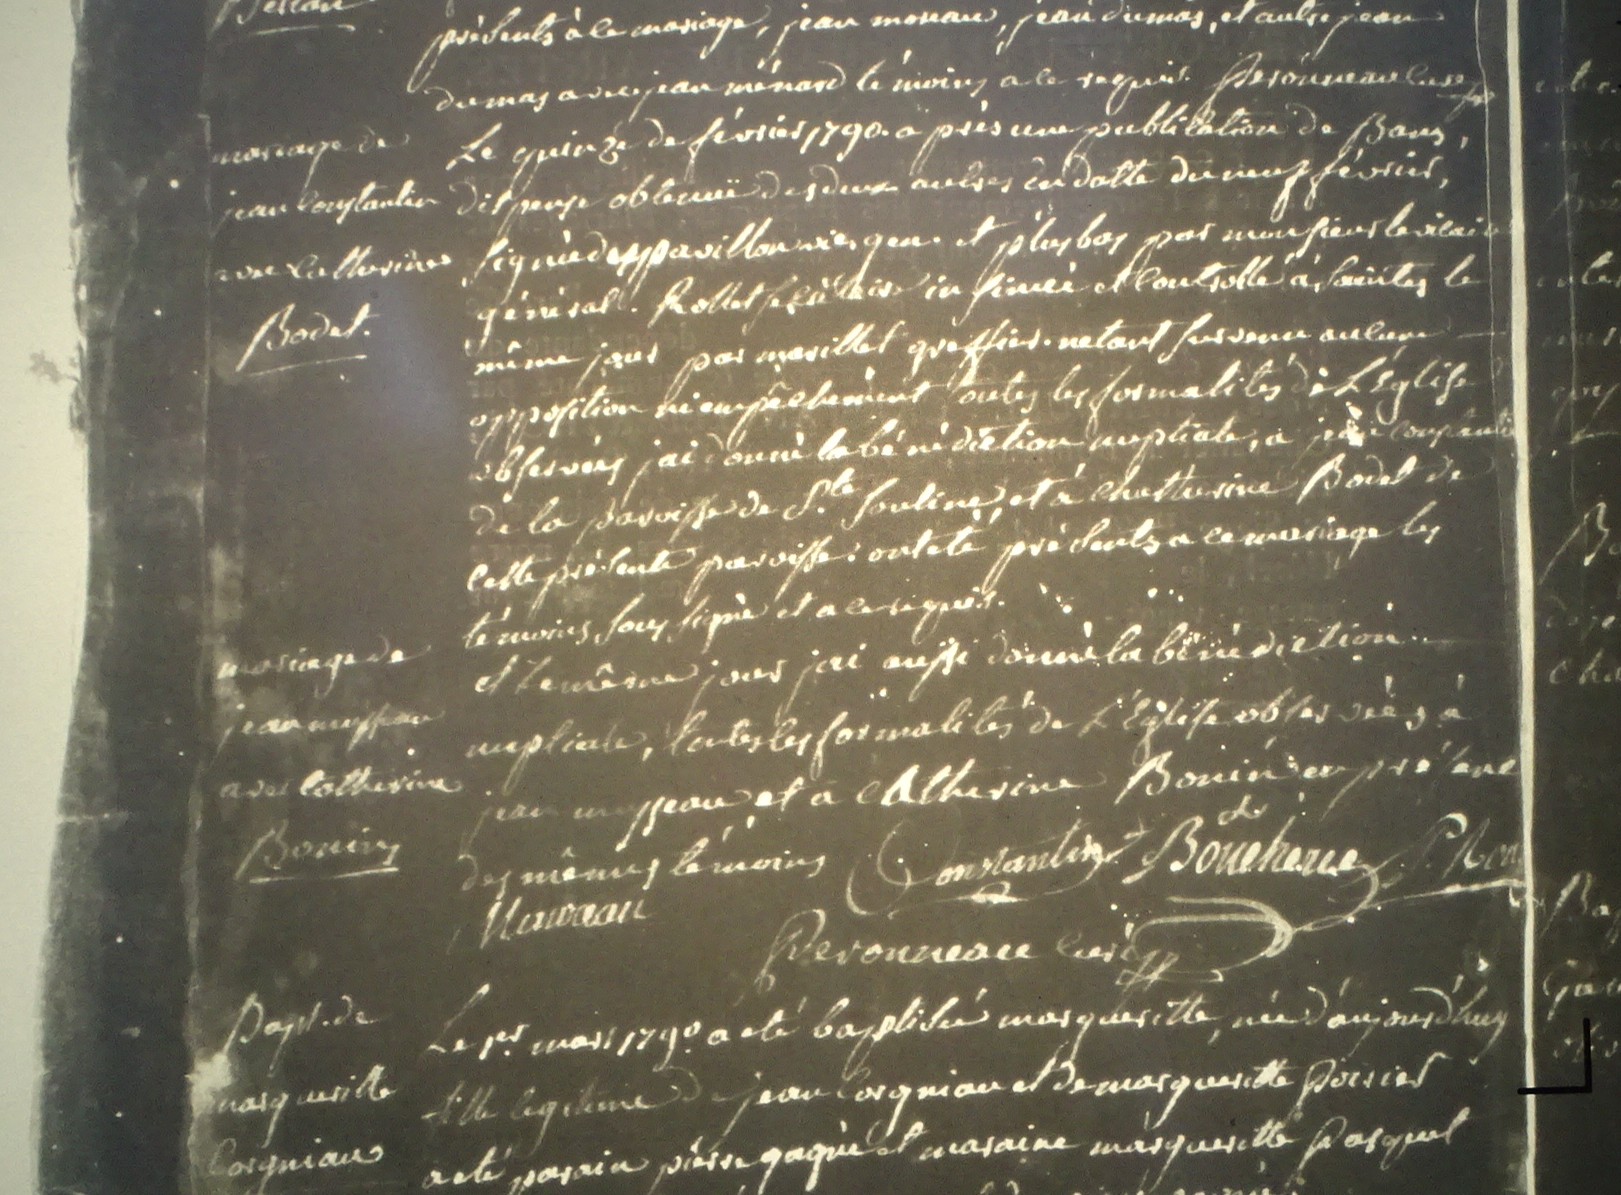 présents à ce mariage, jean moreau, jean dumas, et autre jean
dumas avec jean ménard témoins a ce requis. Peronneau curé
mariage de
jean Constantin
avec Catherine
Bodet.
Le quinze de février 1790. après une publication de Bans,
dispense obtenuë des deux autres en datte du neuf février,
signée et plus bas par monsieur le vicaire
général. secrétaire et controllé à saintes le
même jour par greffier. netant survenu aucune
opposition ni empêchement toutes les formalités de L'Eglise
observées jai donné la bénédiction nuptiale, a jean constantin
de la paroisse de Ste Souline, et à Chatherine Bodet de
cette présente paroisse: ont été présents a ce mariage les
témoins sous signé et a ce requis.
mariage de
jean musseau
avec Catherine
Bouin
et le même jour jai aussi donné la bénédiction
nuptiale, toutes les formalités de L'Eglise observées à
jean musseau et à Catherine Bouin en présence
des mêmes témoins Constantin Boucherie
Peronneau curé
Bapt. de
marguerite
Corgniau
Le 1er mars 1790 a été baptisée margueritte, née d'aujourd'huy
fille legitime de jean Corgniau et de marguerite Poirier
a été parain pierre gagné et maraine marguerite Pasquet